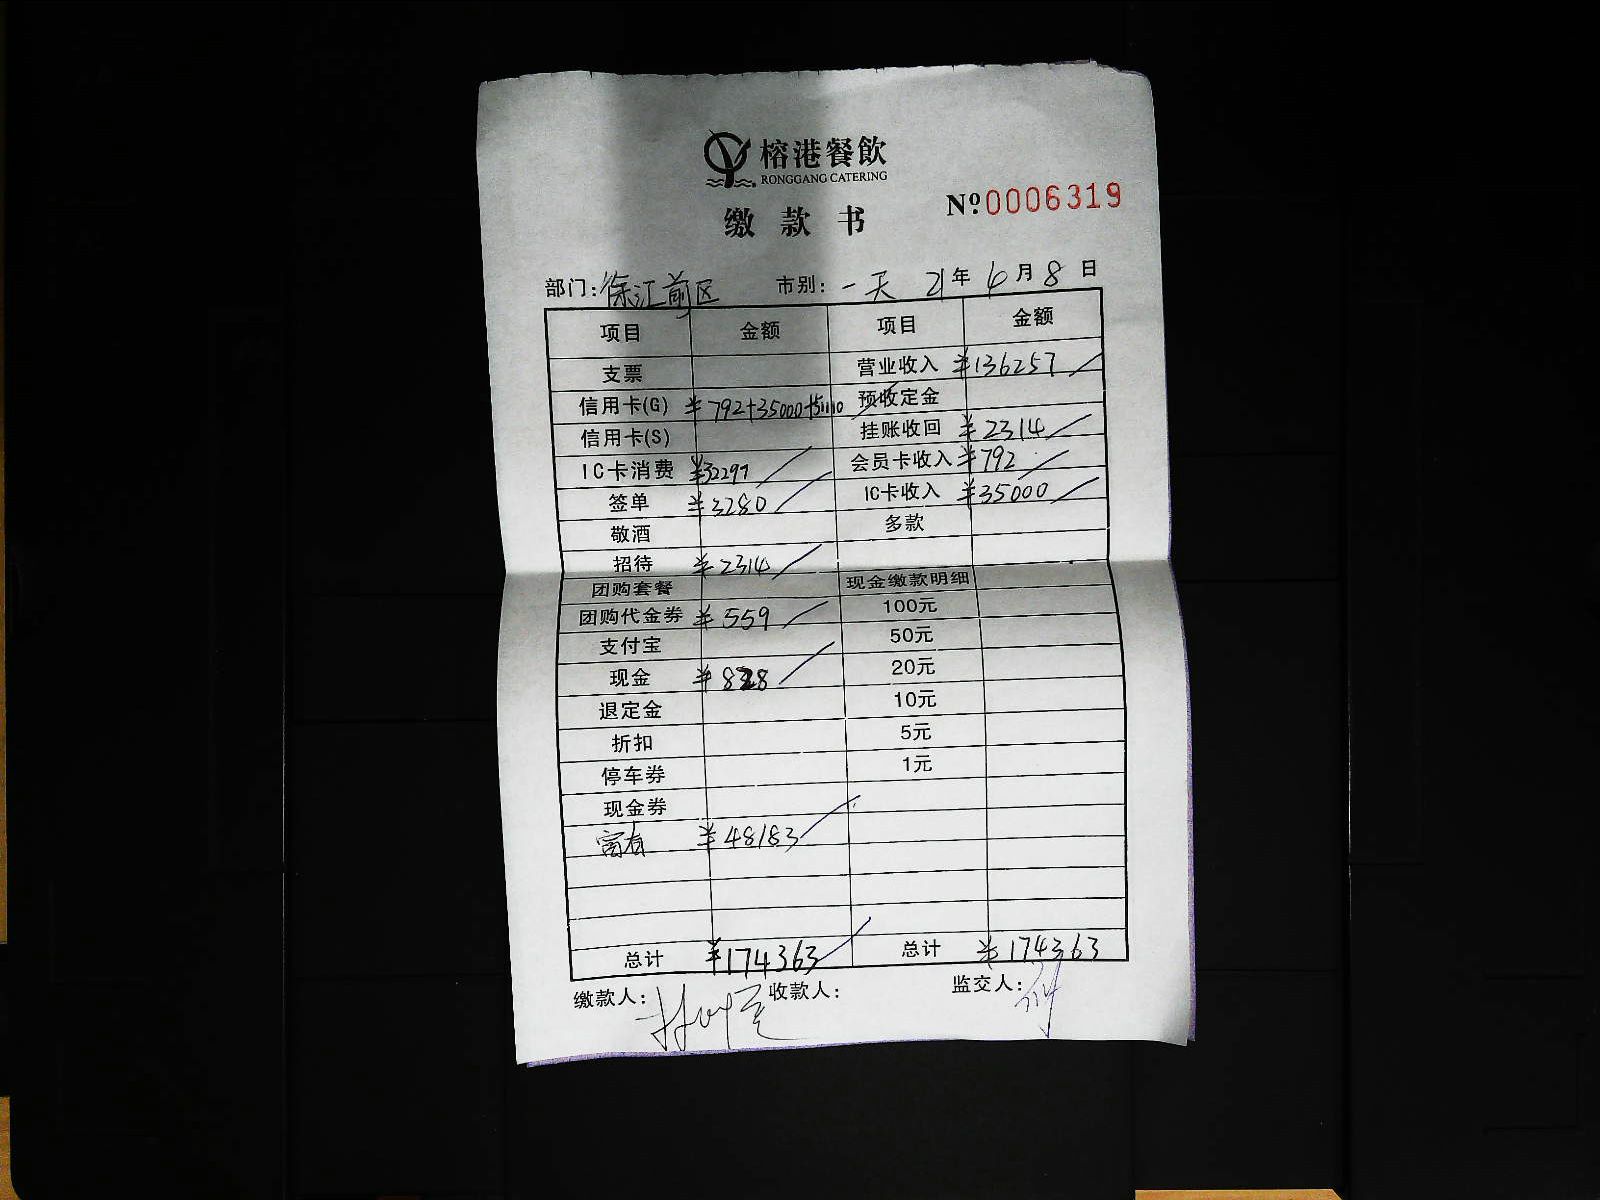 榕港餐飲
RONGGANG CATERING
缴款书
Nº:0006319
部门:徐汇前区 市别:一天 21年 4月 8日
项目 金额 项目 金额
支票 营业收入 ¥136257
信用卡(G) ¥792+35000+51110 预收定金
信用卡(S) 挂账收回 ¥2314
IC卡消费 ¥32297 会员卡收入 ¥792
签单 ¥3280 IC卡收入 ¥35000
敬酒 多款
招待 ¥2314
团购套餐 现金缴款明细
团购代金券 ¥559 100元
支付宝 50元
现金 ¥828 20元
退定金 10元
折扣 5元
停车券 1元
现金券
富有 ¥48183
总计 ¥174363 总计 ¥174363
缴款人: 收款人: 监交人: